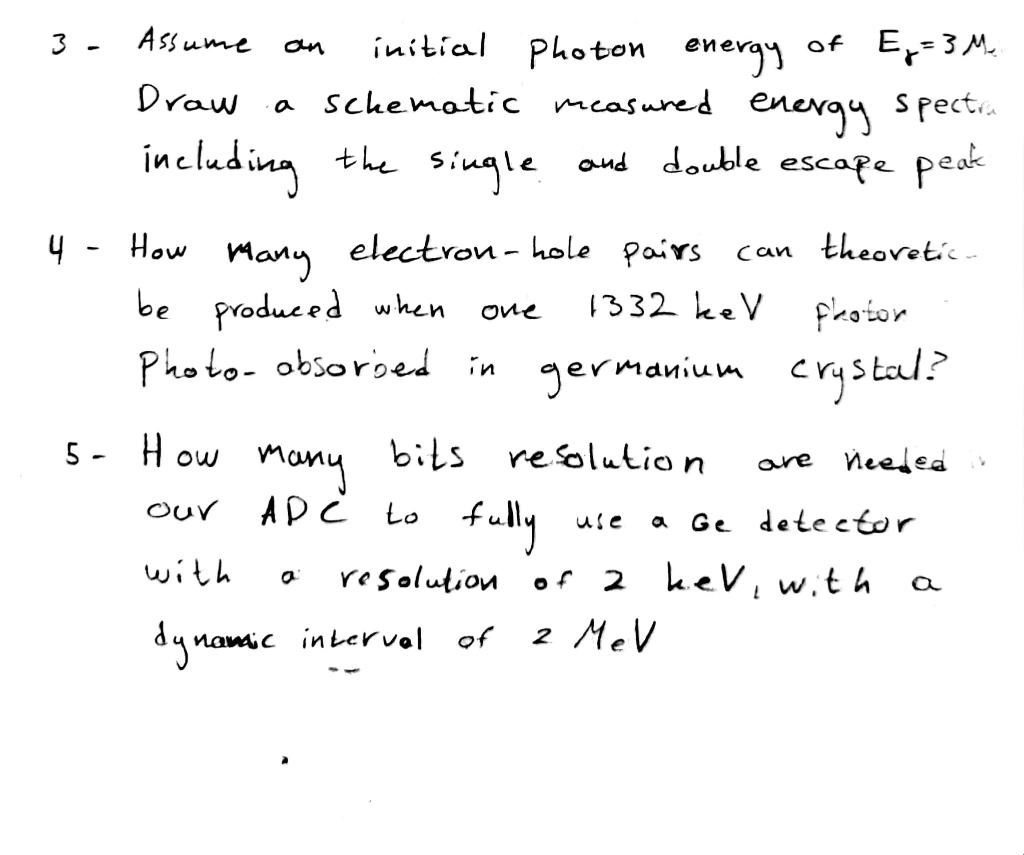 3 - Assume an initial photon energy of Eγ=3 M
Draw a schematic measured energy spectr
including the single and double escape peak
4 - How many electron-hole pairs can theoretic
be produced when one 1332 keV photon
photo-absorbed in germanium crystal?
5 - How many bits resolution are needed
our ADC to fully use a Ge detector
with a resolution of 2 keV, with a
dynamic interval of 2 MeV